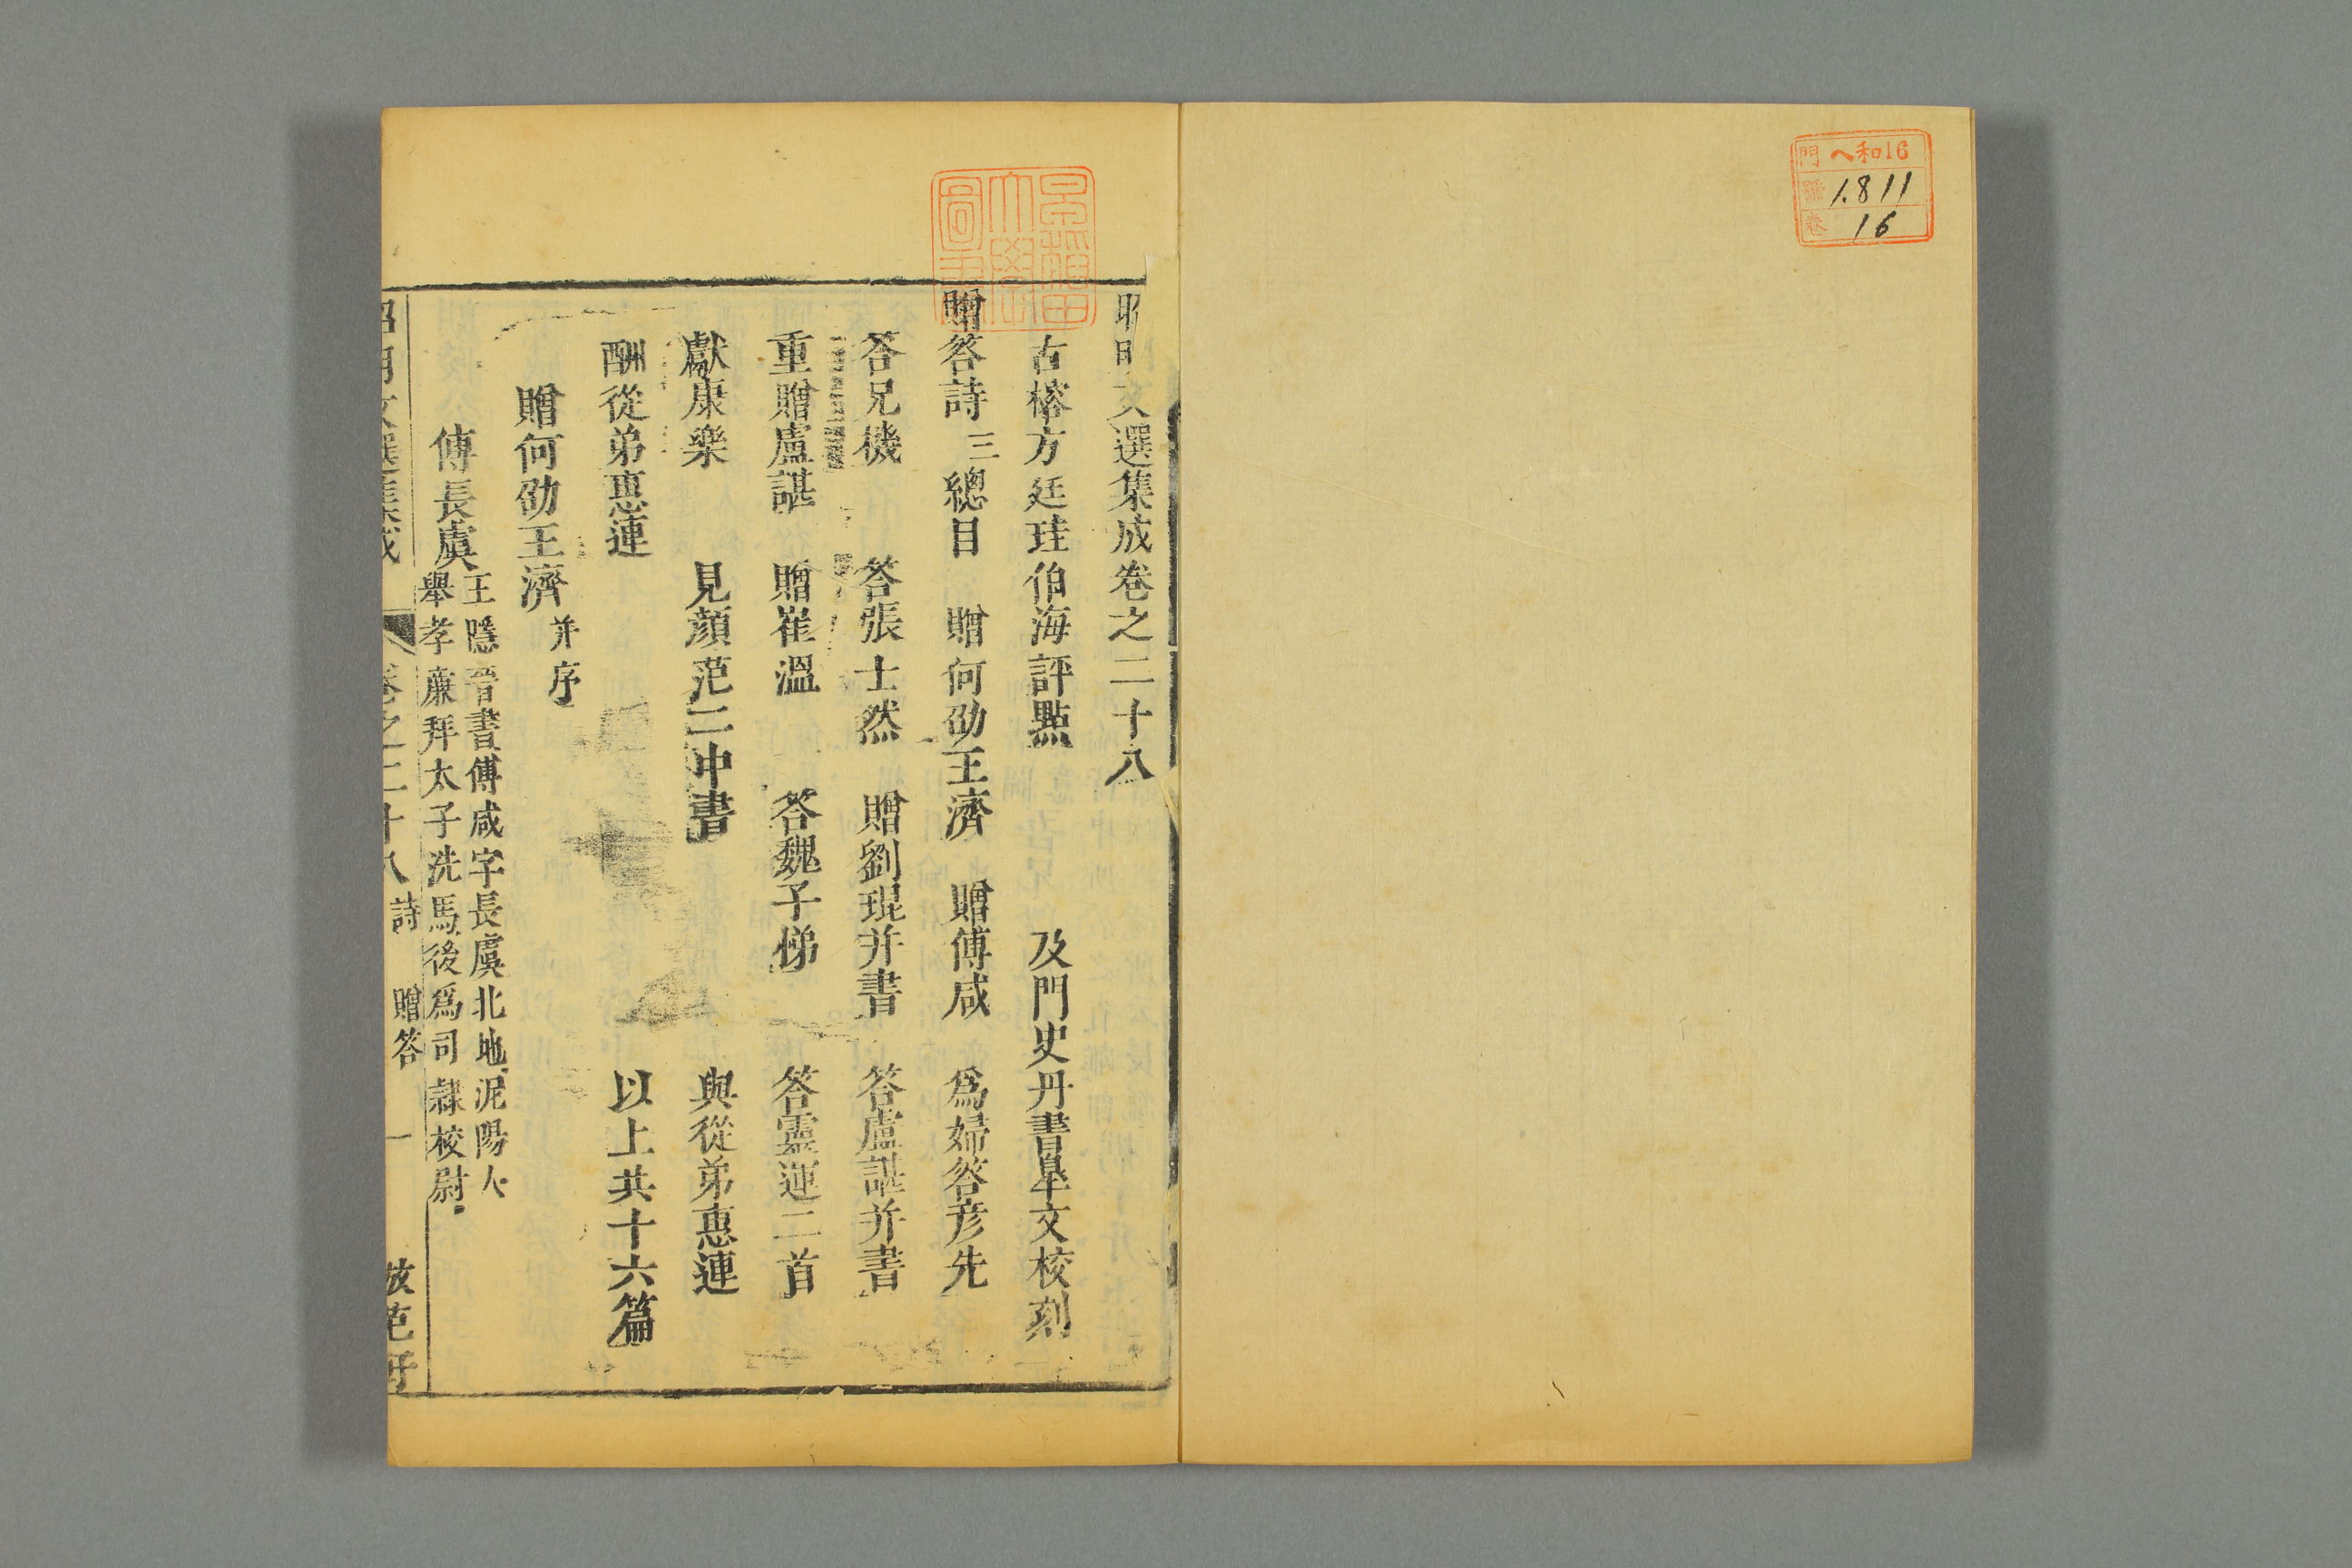 門 ヘ和16
號 1.811
卷 16
昭明文選集成卷之二十八
古榕方廷珪伯海評點 及門史丹書臯文校刻
贈答詩 三 總目 贈何劭王濟 贈傅咸 爲婦答彦先
答兄機 答張士然 贈劉琨并書 答盧諶并書
重贈盧諶 贈崔溫 答魏子悌 答靈運二首
獻康樂 見顔范二中書 與從弟惠連
酬從弟惠連 以上共十六篇
贈何劭王濟 并序
傅長虞 王隱晉書傅咸字長虞北地泥陽人
舉孝廉拜太子洗馬後爲司隷校尉
昭明文選集成 卷之二十八 詩 贈答 一
早稲田大學圖書